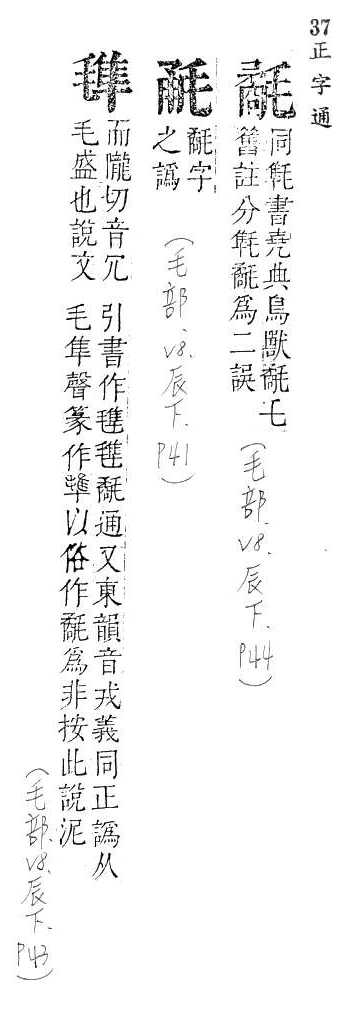 37
正字通
氄
同㲨書堯典鳥獸氄毛
舊註分㲨氄爲二誤
(毛部. v8. 辰下. P44)
氄字
之譌
(毛部. v8. 辰下. P41)
而隴切音冗
毛盛也說文
引書作㲨㲨氄通又東韻音戎義同正譌从
毛隼聲篆作以俗作氄爲非按此說泥
(毛部. v8. 辰下. P43)